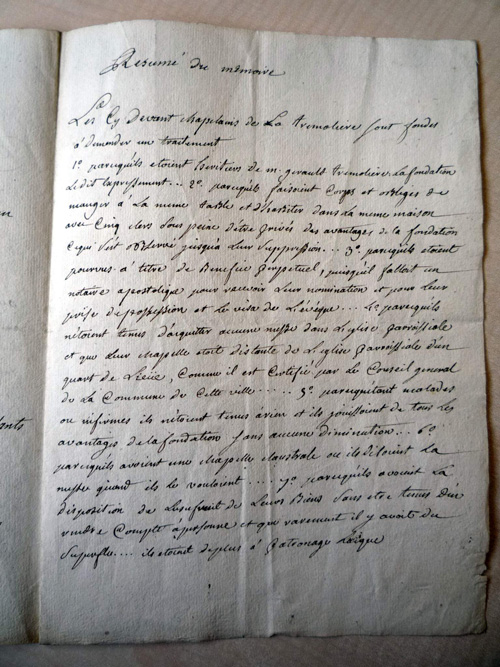 Resumé du memoire
Les Cy devant chapelains de La tremoliere sont fondés
a demander un traitement
1º parcequils etoient heritiers de m. gerault tremoliere La fondation
Le dit expressement... 2º parcequils faisoient Corps et obligés de
manger a La meme table et d'habiter dans La meme maison
avec Cinq clers sous peine d'être privés des avantages de la fondation
Ce qui s'est observé jusqu'a Leur suppression... 3º parcequils etoient
pourvus a titre de Benefice perpetuel, puisquil falloit un
notaire apostolique pour recevoir Leur nomination et pour Leur
prise de possession et Le visa de L'évêque.... 4º parcequils
n'etoient tenus d'aquitter aucune messe dans L'eglise parroissiale
et que Leur chapelle etoit distante de L'eglise parroissiale d'un
quart de Lieüe, Comme il est Certifié par Le Conseil general
de La Commune de Cette ville...... 5º parcequétant malades
ou infirmes ils n'etoient tenus a rien et ils jouissoient de tous Les
avantages de la fondation sans aucune diminution... 6º
parcequils avoient une chapelle claustrale ou ils disoient La
messe quand ils Le vouloient.... 7º parcequils avoient La
disposition de L'usufruit de Leurs Biens sans etre tenus d'en
rendre Compte a personne et que rarement il y avoit du
superflu.... ils etoient de plus a patronage Laïque
ants